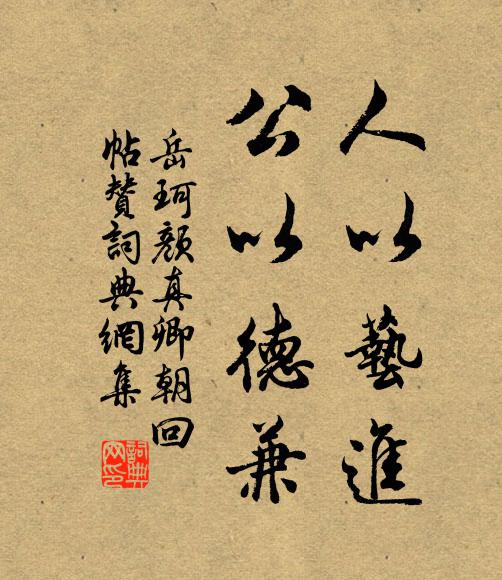 人以藝進
公以德兼
岳珂顏真卿朝回
帖贊詞典網集
詞典网印